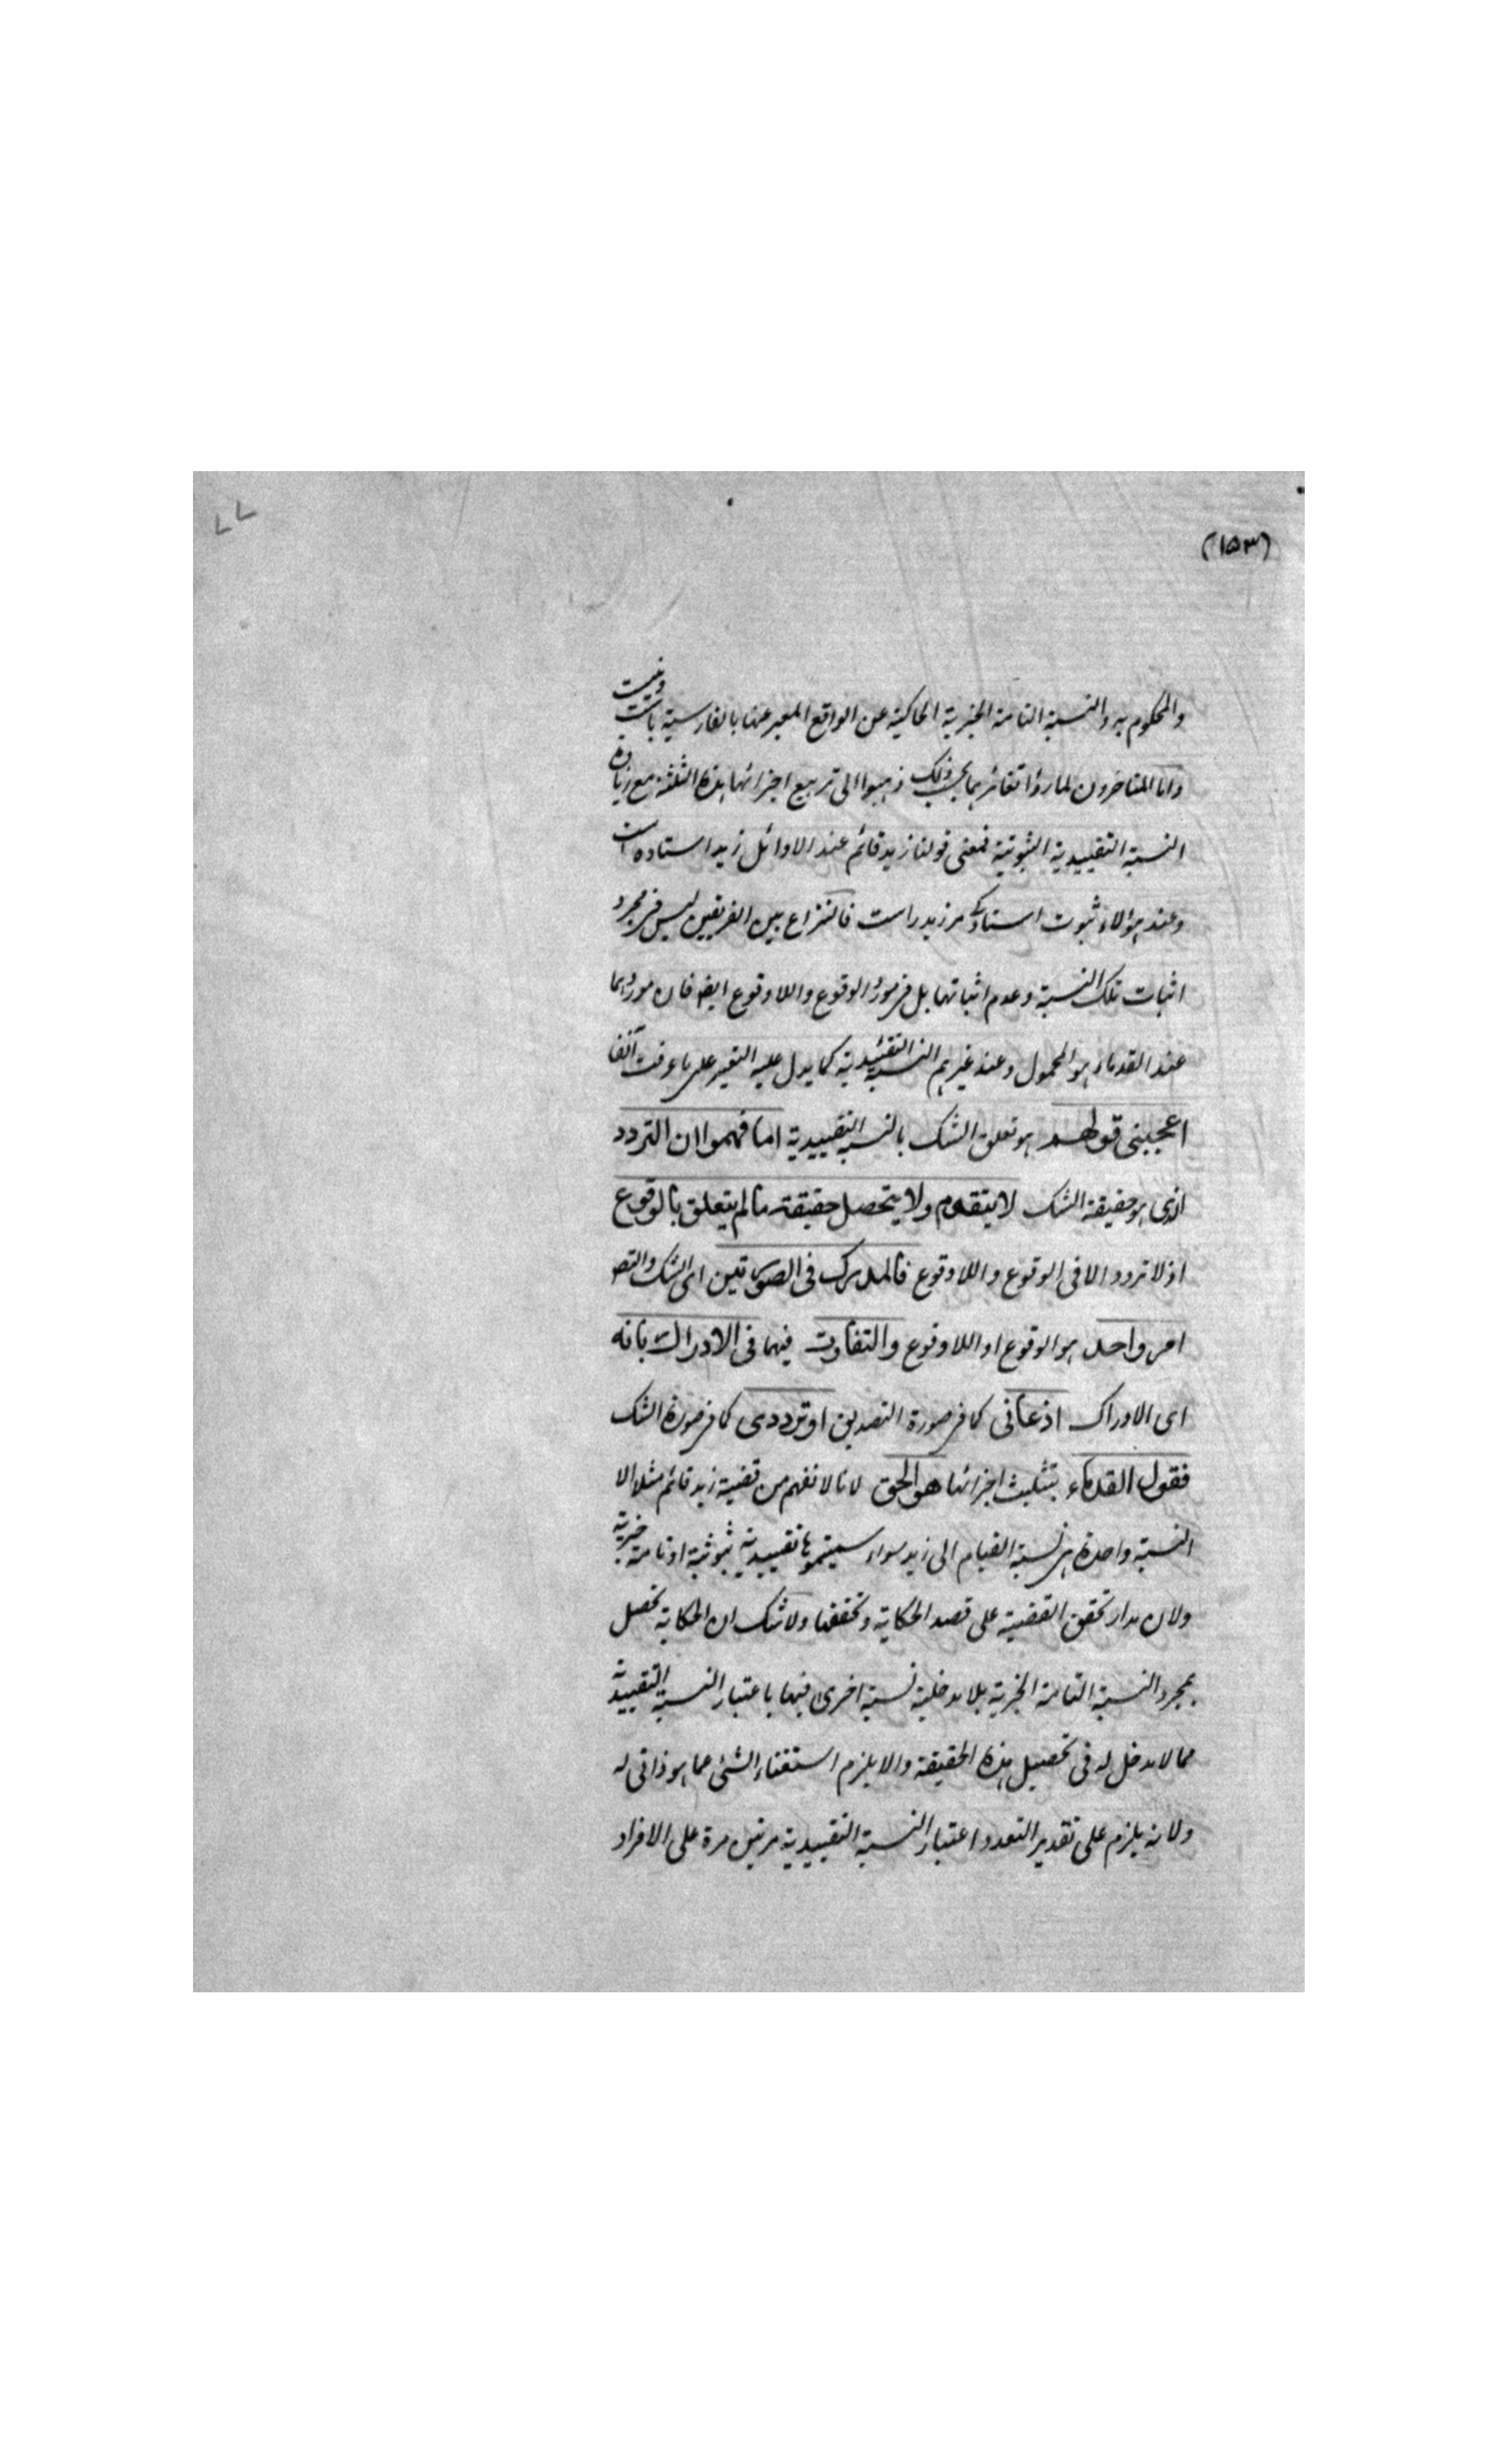 (١٥٣)
٧٧
والمحكوم به والنسبة التامة الخبرية الحاكية عن الواقع المعبر عنها بالفارسية باست ونيست
واما المتاخرون لما رؤا تغائرهما بحسب ذلك ذهبوا الى تربيع اجزائها بهذه الثلثة مع زيادة
النسبة التقييدية الثبوتية فمعنى قولنا زيد قائم عند الاوائل زيد استاده است
وعند هؤلاء ثبوت استادگى مر زيد راست فالنزاع بين الفريقين ليس فى مجرد
اثبات تلك النسبة وعدم اثباتها بل فى مورد الوقوع واللاوقوع ايضا فان موردهما
عند القدماء هو المحمول وعند غيرهم النسبة التقييدية كما يدل عليه التعبير على ما عرفت آنفا
اعجبنى قولهم هو تعلق الشك بالنسبة التقييدية اما فهموا ان التردد
الذى هو حقيقة الشك لا يتقوم ولا يتحصل حقيقة ما لم يتعلق بالوقوع
اذ لا تردد الا فى الوقوع واللاوقوع فالمدرك فى الصورتين اى الشك والتص
امر واحد هو الوقوع او اللاوقوع والتفاوت فيهما فى الادراك بانه
اى الادراك اذعانى كما فى صورة التصديق او ترددى كما فى صورة الشك
فقول القدماء بتثليث اجزائها هو الحق لانا لا نفهم من قضية زيد قائم مثلا الا
النسبة واحدة هى نسبة القيام الى زيد سواء سميتموها تقييدية ثبوتية او تامة خبرية
ولان مدار تحقق القضية على قصد الحكاية وتحققها ولا شك ان الحكاية تحصل
بمجرد النسبة التامة الخبرية بلا مدخلية نسبة اخرى فيها باعتبار النسبة التقييدية
مما لا مدخل له فى تحصيل هذه الحقيقة والا يلزم استغناء الشئ عما هو ذاتى له
ولانه يلزم على تقدير التعدد اعتبار النسبة التقييدية مرتين مرة على الافراد